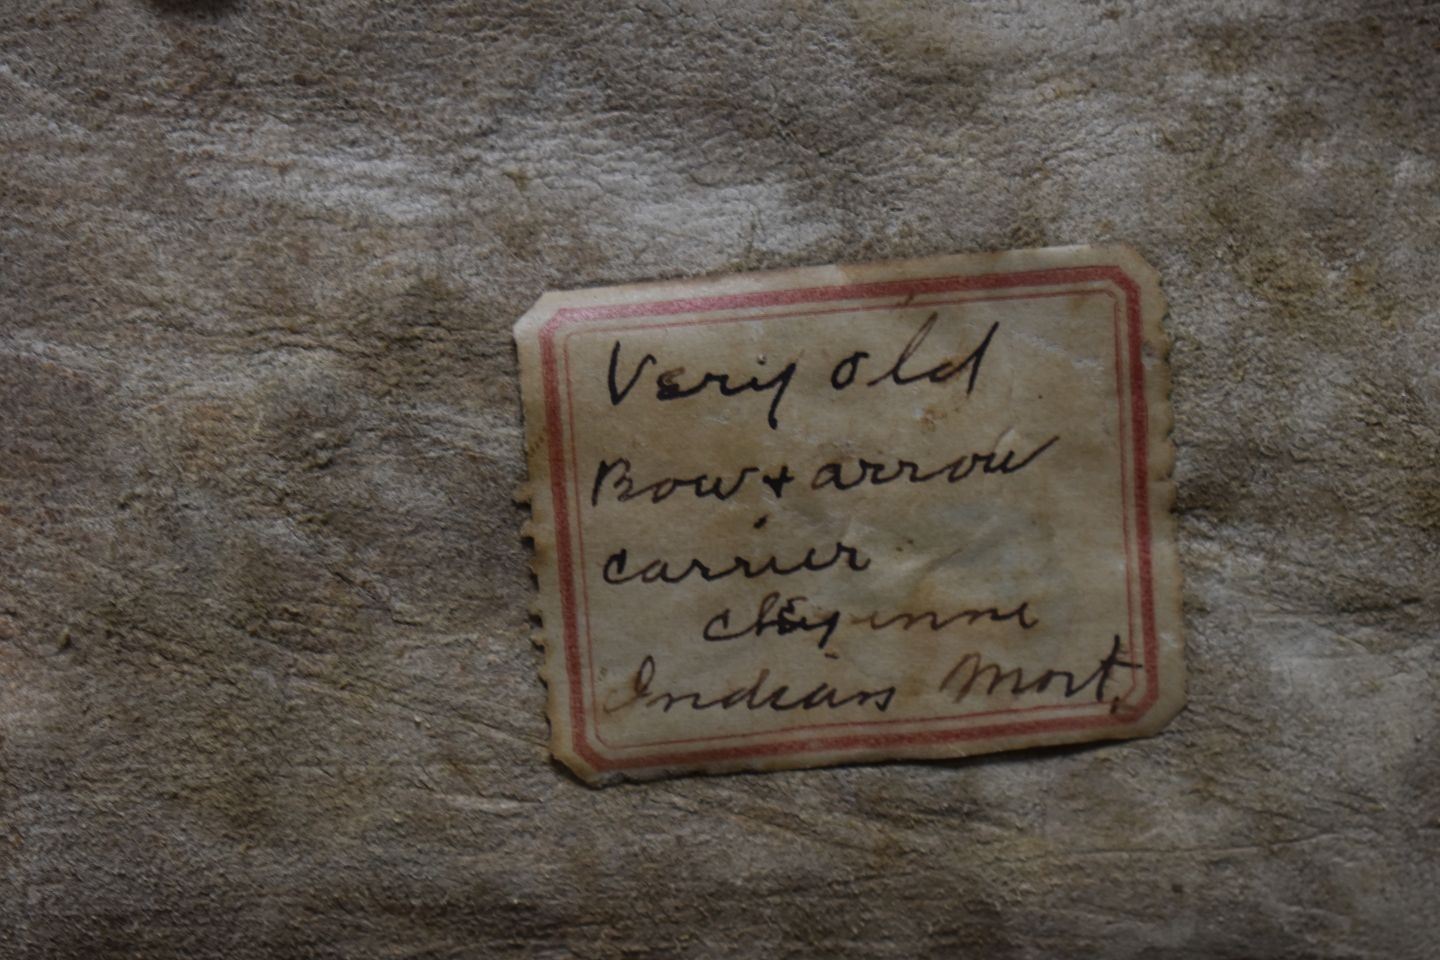 Very old
Bow + arrow
carrier
cheyenne
Indians Mont.